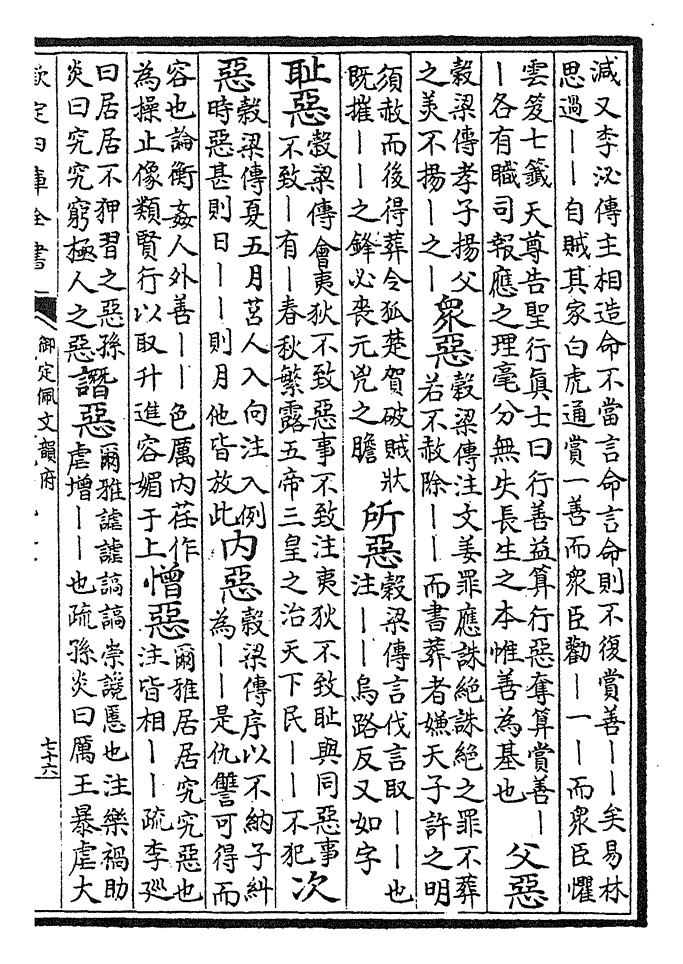 減又李泌傳主相造命不當言命言命則不復賞善——矣易林
思過——自賊其家白虎通賞一善而衆臣勸—一—而衆臣懼
雲笈七籤天尊告聖行真士曰行善益算行惡奪算賞善—
—各有職司報應之理毫分無失長生之本惟善為基也
父惡
穀梁傳孝子揚父
之美不揚—之—
衆惡
穀梁傳注文姜罪應誅絕誅絕之罪不葬
若不赦除——而書葬者嫌天子許之明
須赦而後得葬令狐楚賀破賊狀
既摧——之鋒必喪元兇之膽
所惡
穀梁傳言伐言取——也
注——烏路反又如字
恥惡
穀梁傳會夷狄不致惡事不致注夷狄不致恥與同惡事
不致—有—春秋繁露五帝三皇之治天下民——不犯
次
惡
穀梁傳夏五月莒人入向注入例
時惡甚則日——則月他皆放此
內惡
穀梁傳序以不納子糾
為——是仇讐可得而
容也論衡姦人外善——色厲內荏作
為操止像類賢行以取升進容媚于上
憎惡
爾雅居居究究惡也
注皆相——疏李巡
曰居居不狎習之惡孫
炎曰究究窮極人之惡
譖惡
爾雅謔謔謞謞崇讒慝也注樂禍助
虐增——也疏孫炎曰厲王暴虐大
欽定四庫全書
御定佩文韻府
七十六